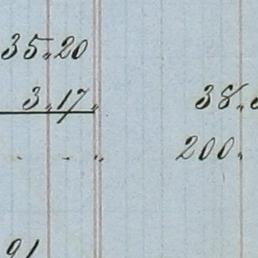 35„20
3„17„ 38„
- - „ 200„
91